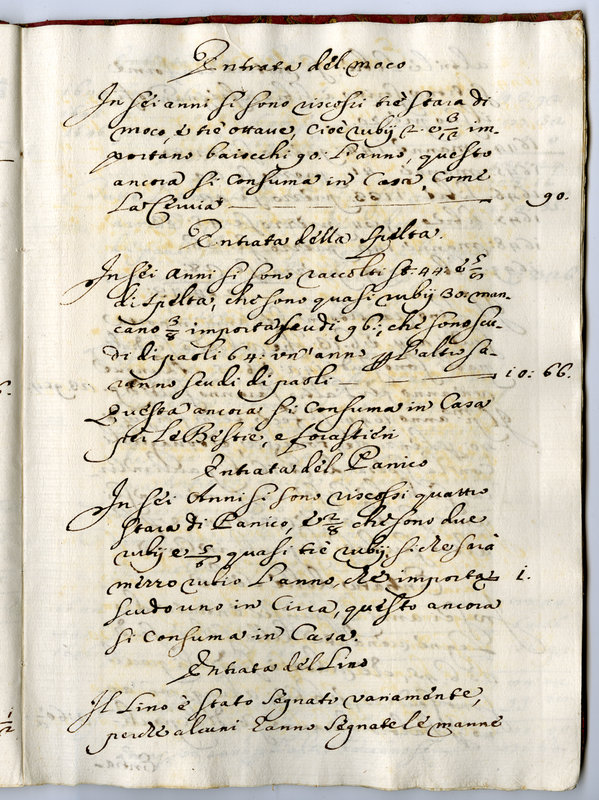 Entrata del moco
In sei anni si sono riscossi trè stara di
moco, è trè ottave, cioè rubij 2. e 3/12 im-
portano baiocchi 90: l'anno, questo
ancora si consuma in Casa, come
la Civvia 90.
Entrata della Spelta.
In sei anni si sono raccolti st: 44: è 5/8
di spelta, che sono quasi rubij 30: man-
cano 3/8 importa scudi 96:, che sono scu-
di di paoli 64: un'anno l'altro sa-
ranno scudi di paoli 10: 66.
Questa ancora si consuma in Casa
per le Bestie, e forastieri
Entrata del Panico
In sei Anni si sono riscossi quattro
stara di Panico, è 2/8 che sono due
rubij e 5/6 quasi trè rubij; si che sarà
mezzo rubio l'anno, che importa 1.
scudo uno in Circa, questo ancora
si consuma in Casa.
Entrata del Lino
Il Lino è stato segnato variamente,
perche alcuni hanno segnate le manne